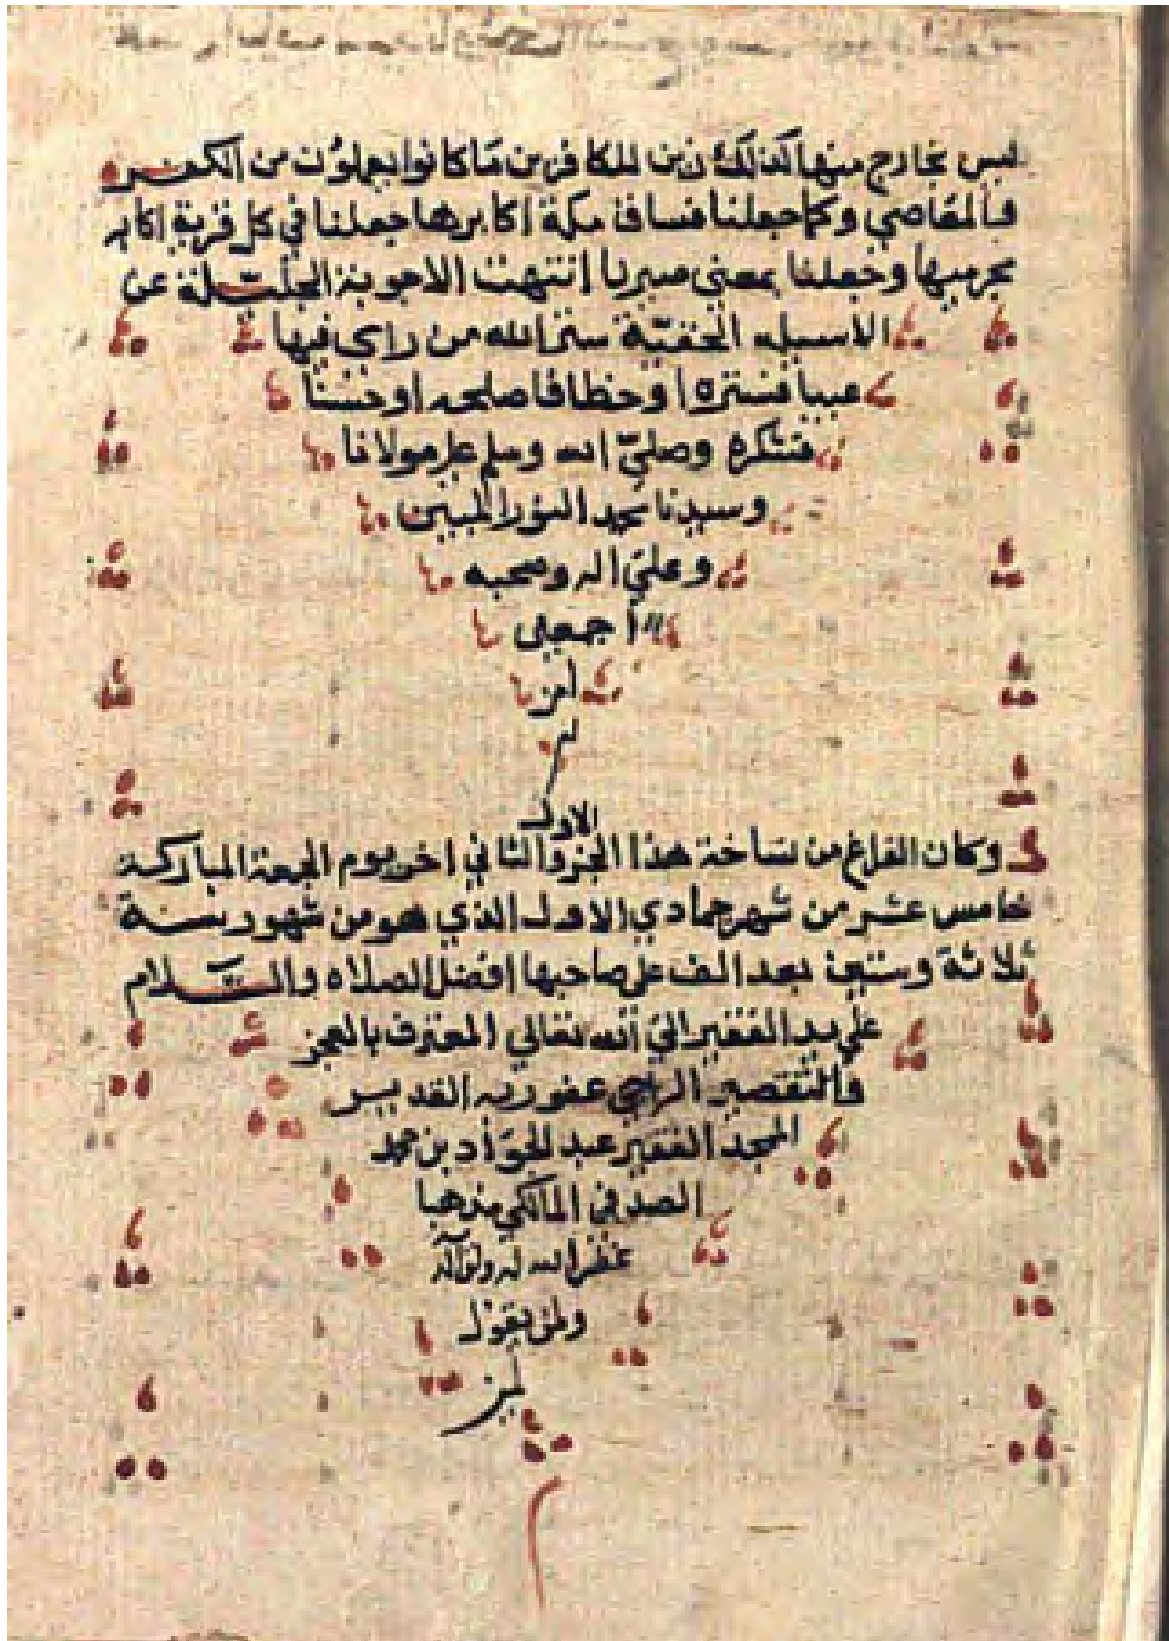 ليس بخارج منها كذلك زين للكافرين ما كانوا يعملون من الكفر
والمعاصي وكما جعلنا فساق مكة اكابرها جعلنا في كل قرية اكابر
مجرميها وجعلنا بمعنى صيرنا انتهت الاجوبة الجليلة عن
الاسيله الخفيّة ستر الله من راى فيها
عيبا فستره او خطا فاصلحه او حسنا
فشكره وصليّ الله وسلم على مولانا
وسيدنا محمد النور المبين
وعليّ اله وصحبه
أجمعين
امين
تم
الاول
وكان الفراغ من نساخة هذا الجزو الثاني اخر يوم الجمعة المباركة
خامس عشر من شهر جمادي الاول الذي هو من شهور سنة
ثلاثة وستين بعد الف على صاحبها افضل الصلاه والسلام
علي يد الفقير اليّ الله تعالي المعترف بالعجز
والتقصير الراجي عفو ربه القدير
الفقير عبد الجوّاد بن محمد
المالكي مذهبا
غفر الله له ولوالديه
ولمن يقول
امين